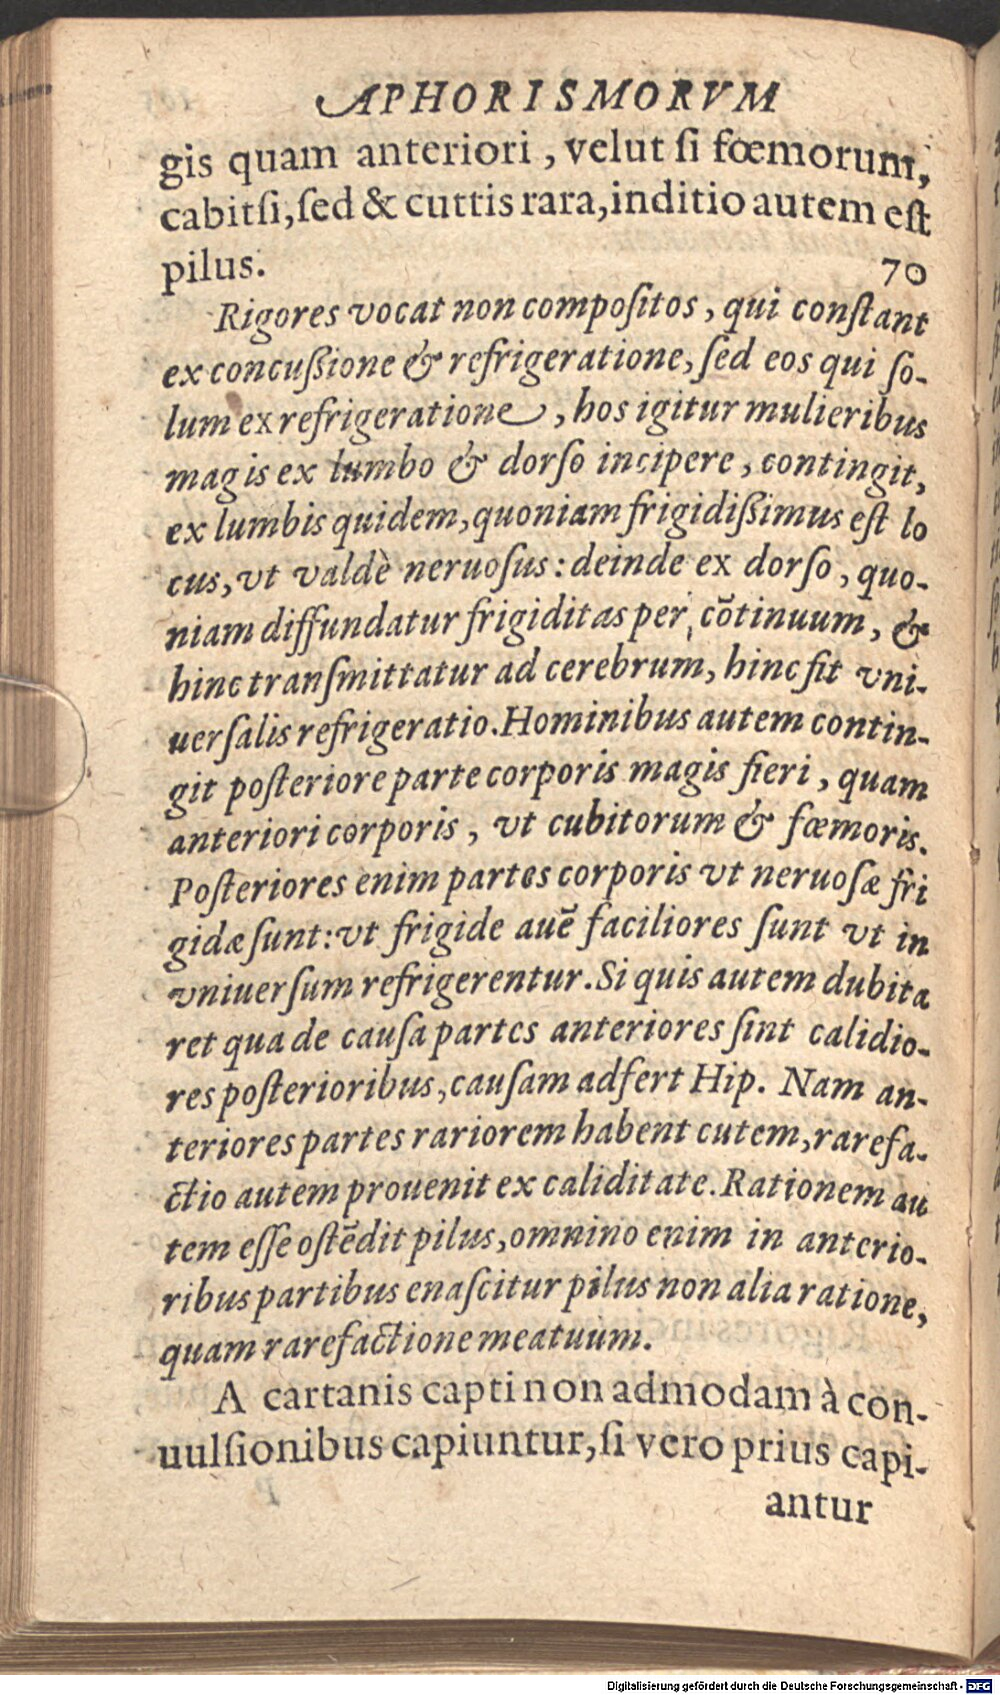 APHORISMORVM
gis quam anteriori, velut ſi fœmorum,
cabitſi, ſed & cuttis rara, inditio autem eſt
pilus. 70
Rigores vocat non compoſitos, qui conſtant
ex concuſſione & refrigeratione, ſed eos qui ſo-
lum ex refrigeratione, hos igitur mulieribus
magis ex lumbo & dorſo incipere, contingit,
ex lumbis quidem, quoniam frigidiſſimus eſt lo
cus, vt valdè neruoſus: deinde ex dorſo, quo-
niam diffundatur frigiditas per cõtinuum, &
hinc tranſmittatur ad cerebrum, hinc fit vni-
uerſalis refrigeratio. Hominibus autem contin-
git poſteriore parte corporis magis fieri, quam
anteriori corporis, vt cubitorum & fœmoris.
Poſteriores enim partes corporis vt neruoſæ fri
gidæ ſunt: vt frigide auẽ faciliores ſunt vt in
vniuerſum refrigerentur. Si quis autem dubita
ret qua de cauſa partes anteriores ſint calidio-
res poſterioribus, cauſam adfert Hip. Nam an-
teriores partes rariorem habent cutem, rarefa-
ctio autem prouenit ex caliditate. Rationem au
tem eſſe oſtẽdit pilus, omnino enim in anterio-
ribus partibus enaſcitur pilus non alia ratione,
quam rarefactione meatuum.
A cartanis capti non admodam à con-
uulſionibus capiuntur, ſi vero prius capi-
antur
Digitalisierung gefördert durch die Deutsche Forschungsgemeinschaft - DFG